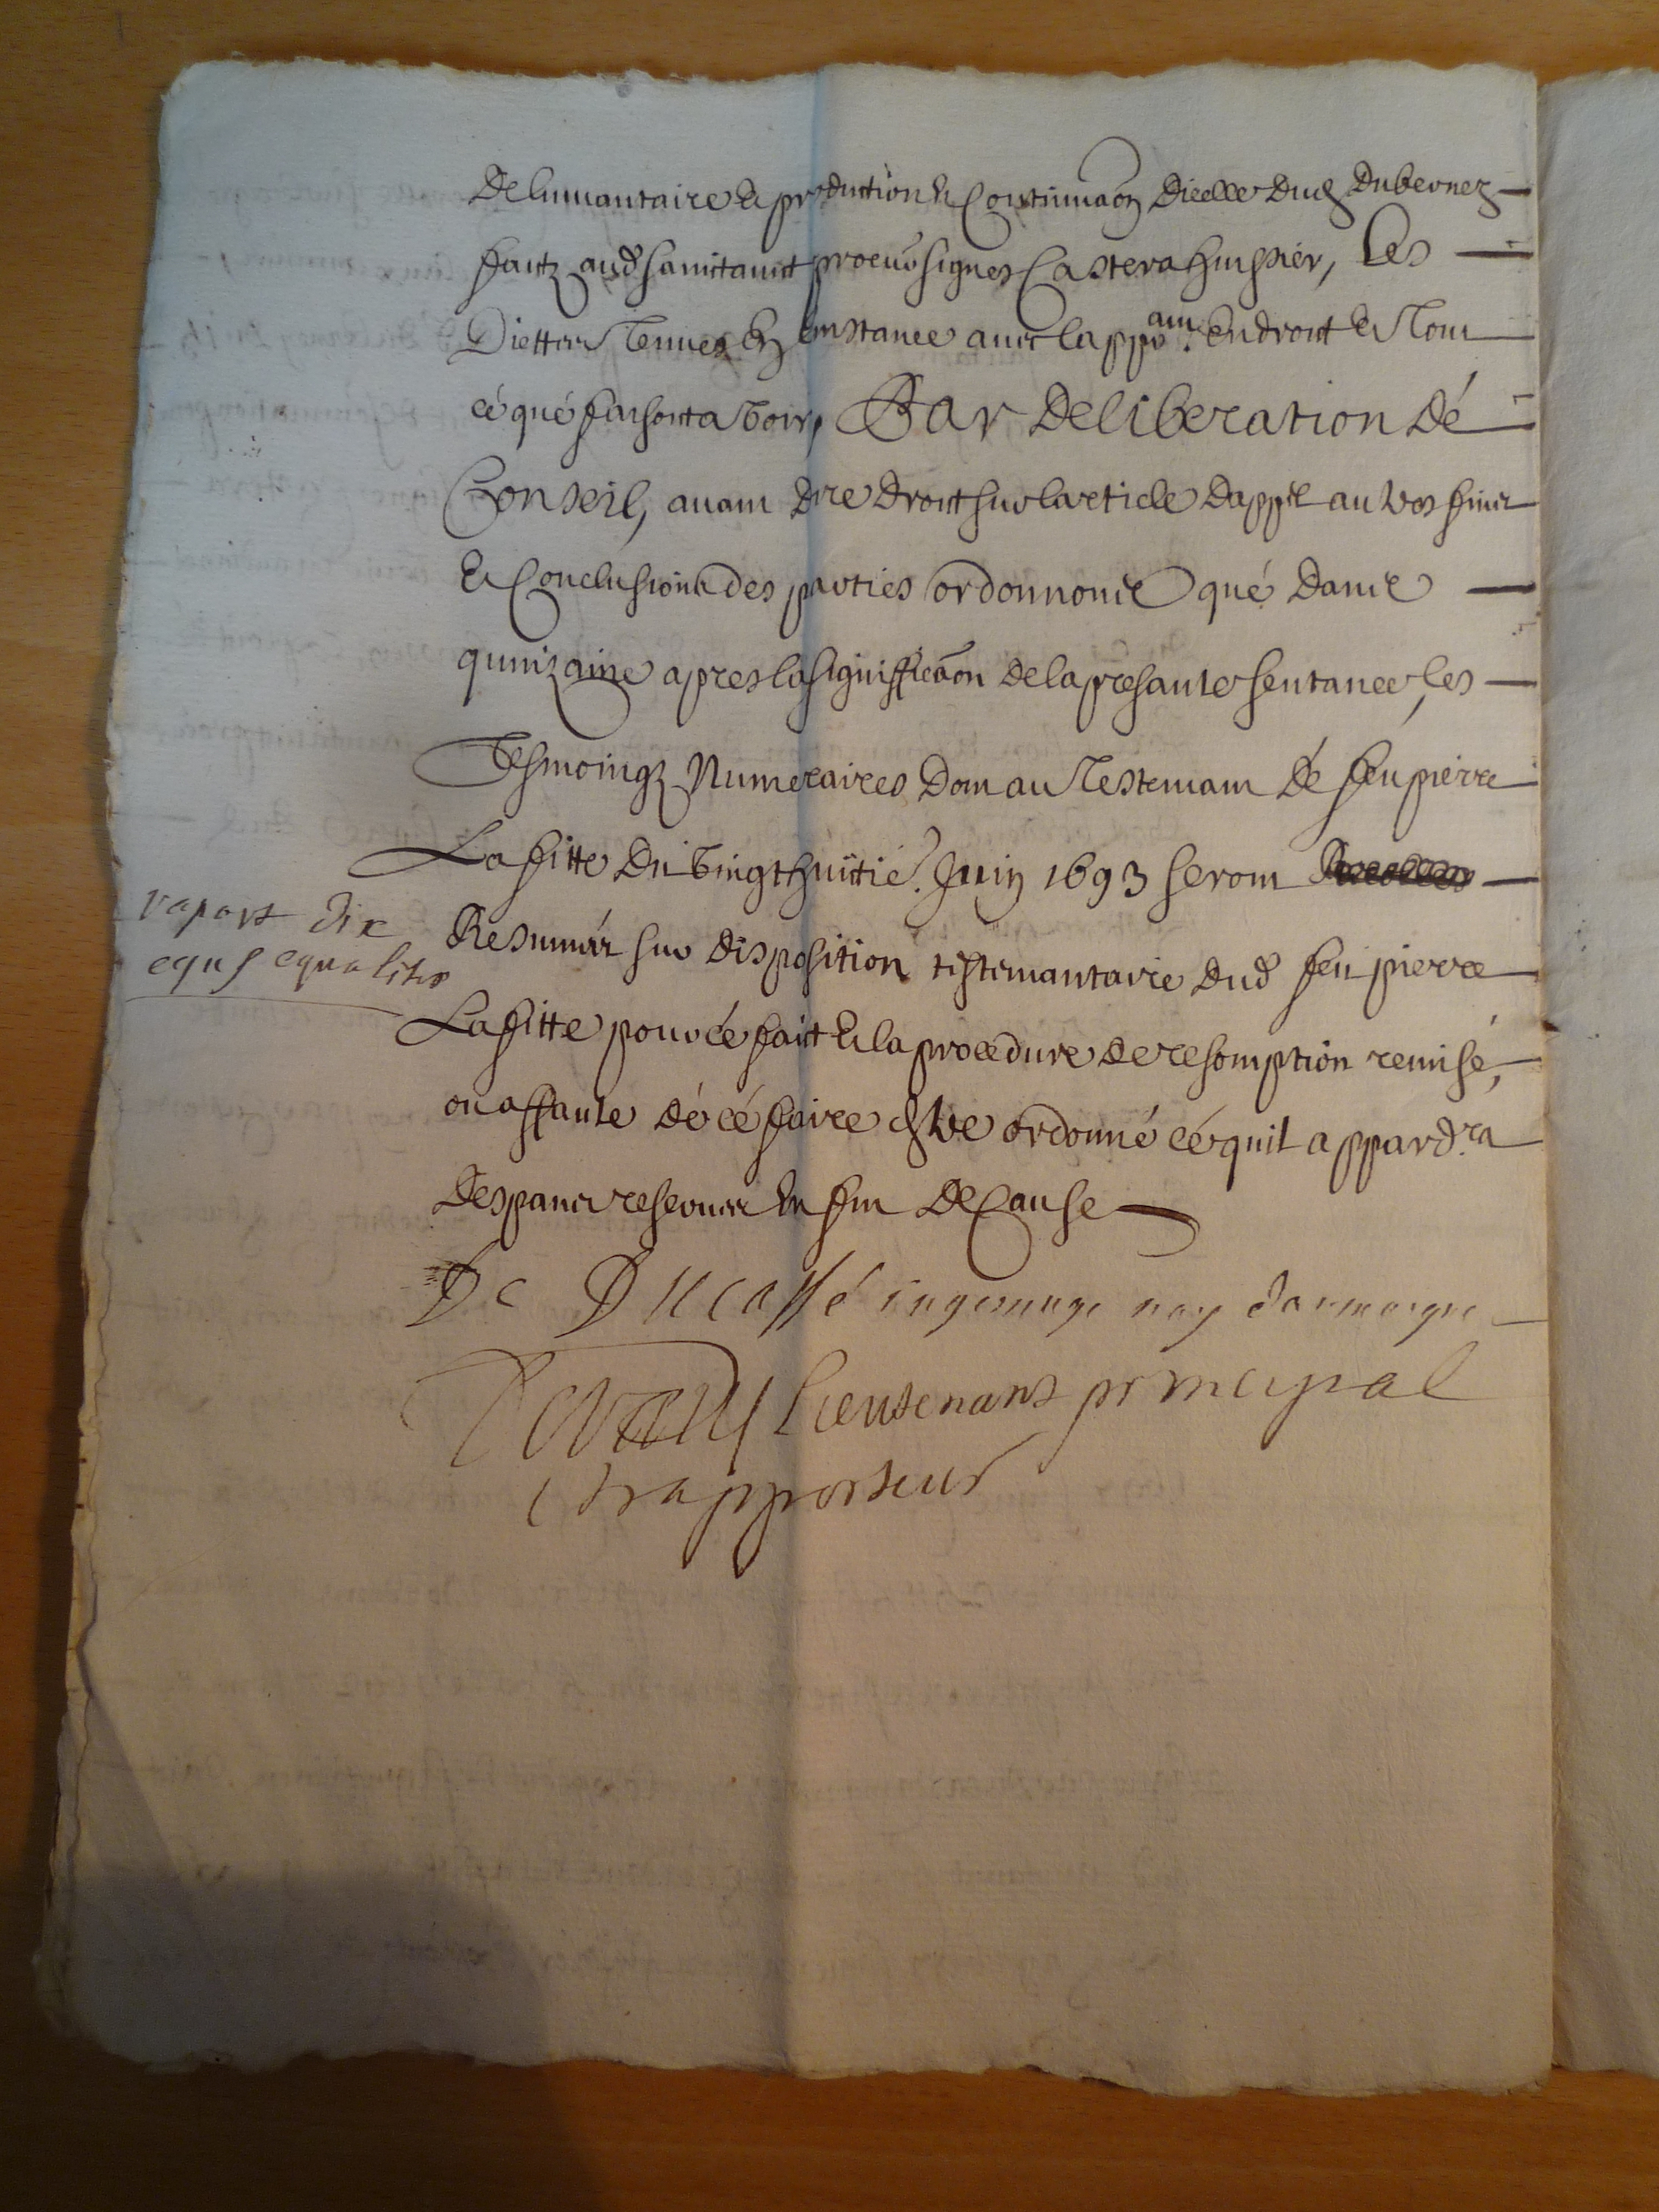 De linuantaire & production & Continuaõn Dicelle Dud Dubernez
faitz aud Sanitauit procur signes Castera huissier, Les
Diettes Tenues En Instance auec lappoam. en droit & Tout
cé qué faisoit a Voir, Par Deliberation Dé
Conseil, auant Dire Droit sur larticle Dappel autres fins
& Conclusions des parties ordonnons qué Dans
quinzaine apres la signifficãon de la presante sentance, les
Tesmoingz Numeraires Dom au Testemant dé feu pierre
Lafitte Du Vingt huittié. Juin 1693 seront
Resumés sur disposition testemantaire dud feu pierre
Lafitte pour cé fait & la procedure de resomption remisé,
ou affaute dé cé faire estre ordonné cé quil appardra
Despans reserues En fin De Cause
raport dix
equs equalité
De Ducassé iugemage
lieutenant principal
et rapporteur